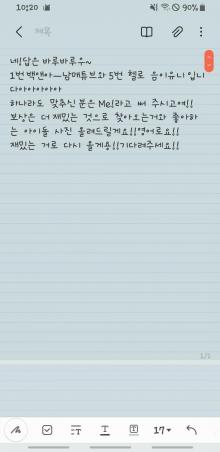 10:20
90%
제목
네!답은 바루바루우~
1번 백앤아—남매튜브와 5번 헬로 음이유니 입니
다아아아아아
하나라도 맞추신 분은 Me!라고 써 주시고예!!
보상은 더 재밌는 것으로 찾아오는거와 좋아하
는 아이돌 사진 올려드릴게요!!영어로요!!
재밌는 거로 다시 올게용!!기다려주세요!!
1/1
17